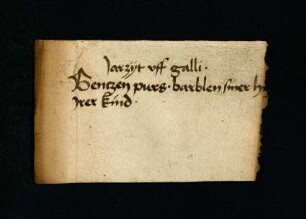 Jarzyt vff galli.
Bentzen purs. barblen siner
Jrer kind.